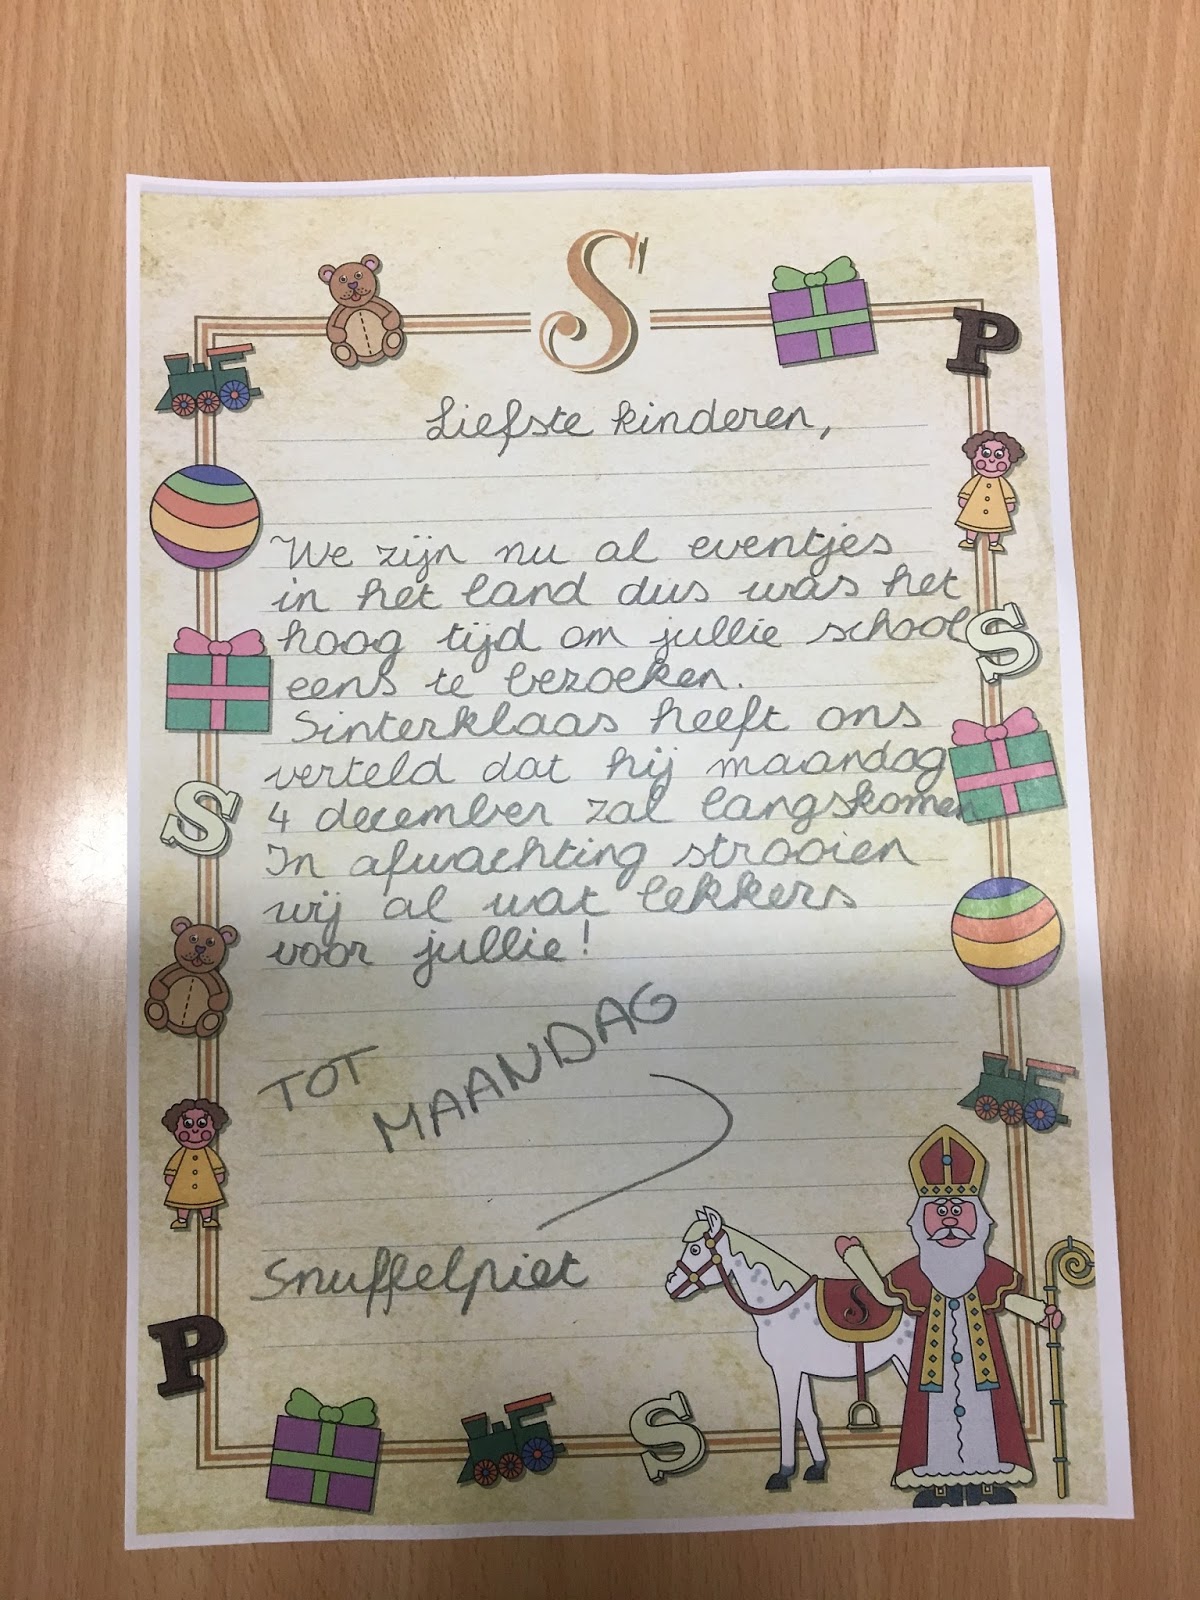 S
P
Liefste kinderen,
We zijn nu al eventjes
in het land dus was het
hoog tijd om jullie school
eens te bezoeken.
Sinterklaas heeft ons
verteld dat hij maandag
4 december zal langskomen
In afwachting strooien
wij al wat lekkers
voor jullie!
TOT
MAANDAG
Snuffelpiet
S
S
P
S
S